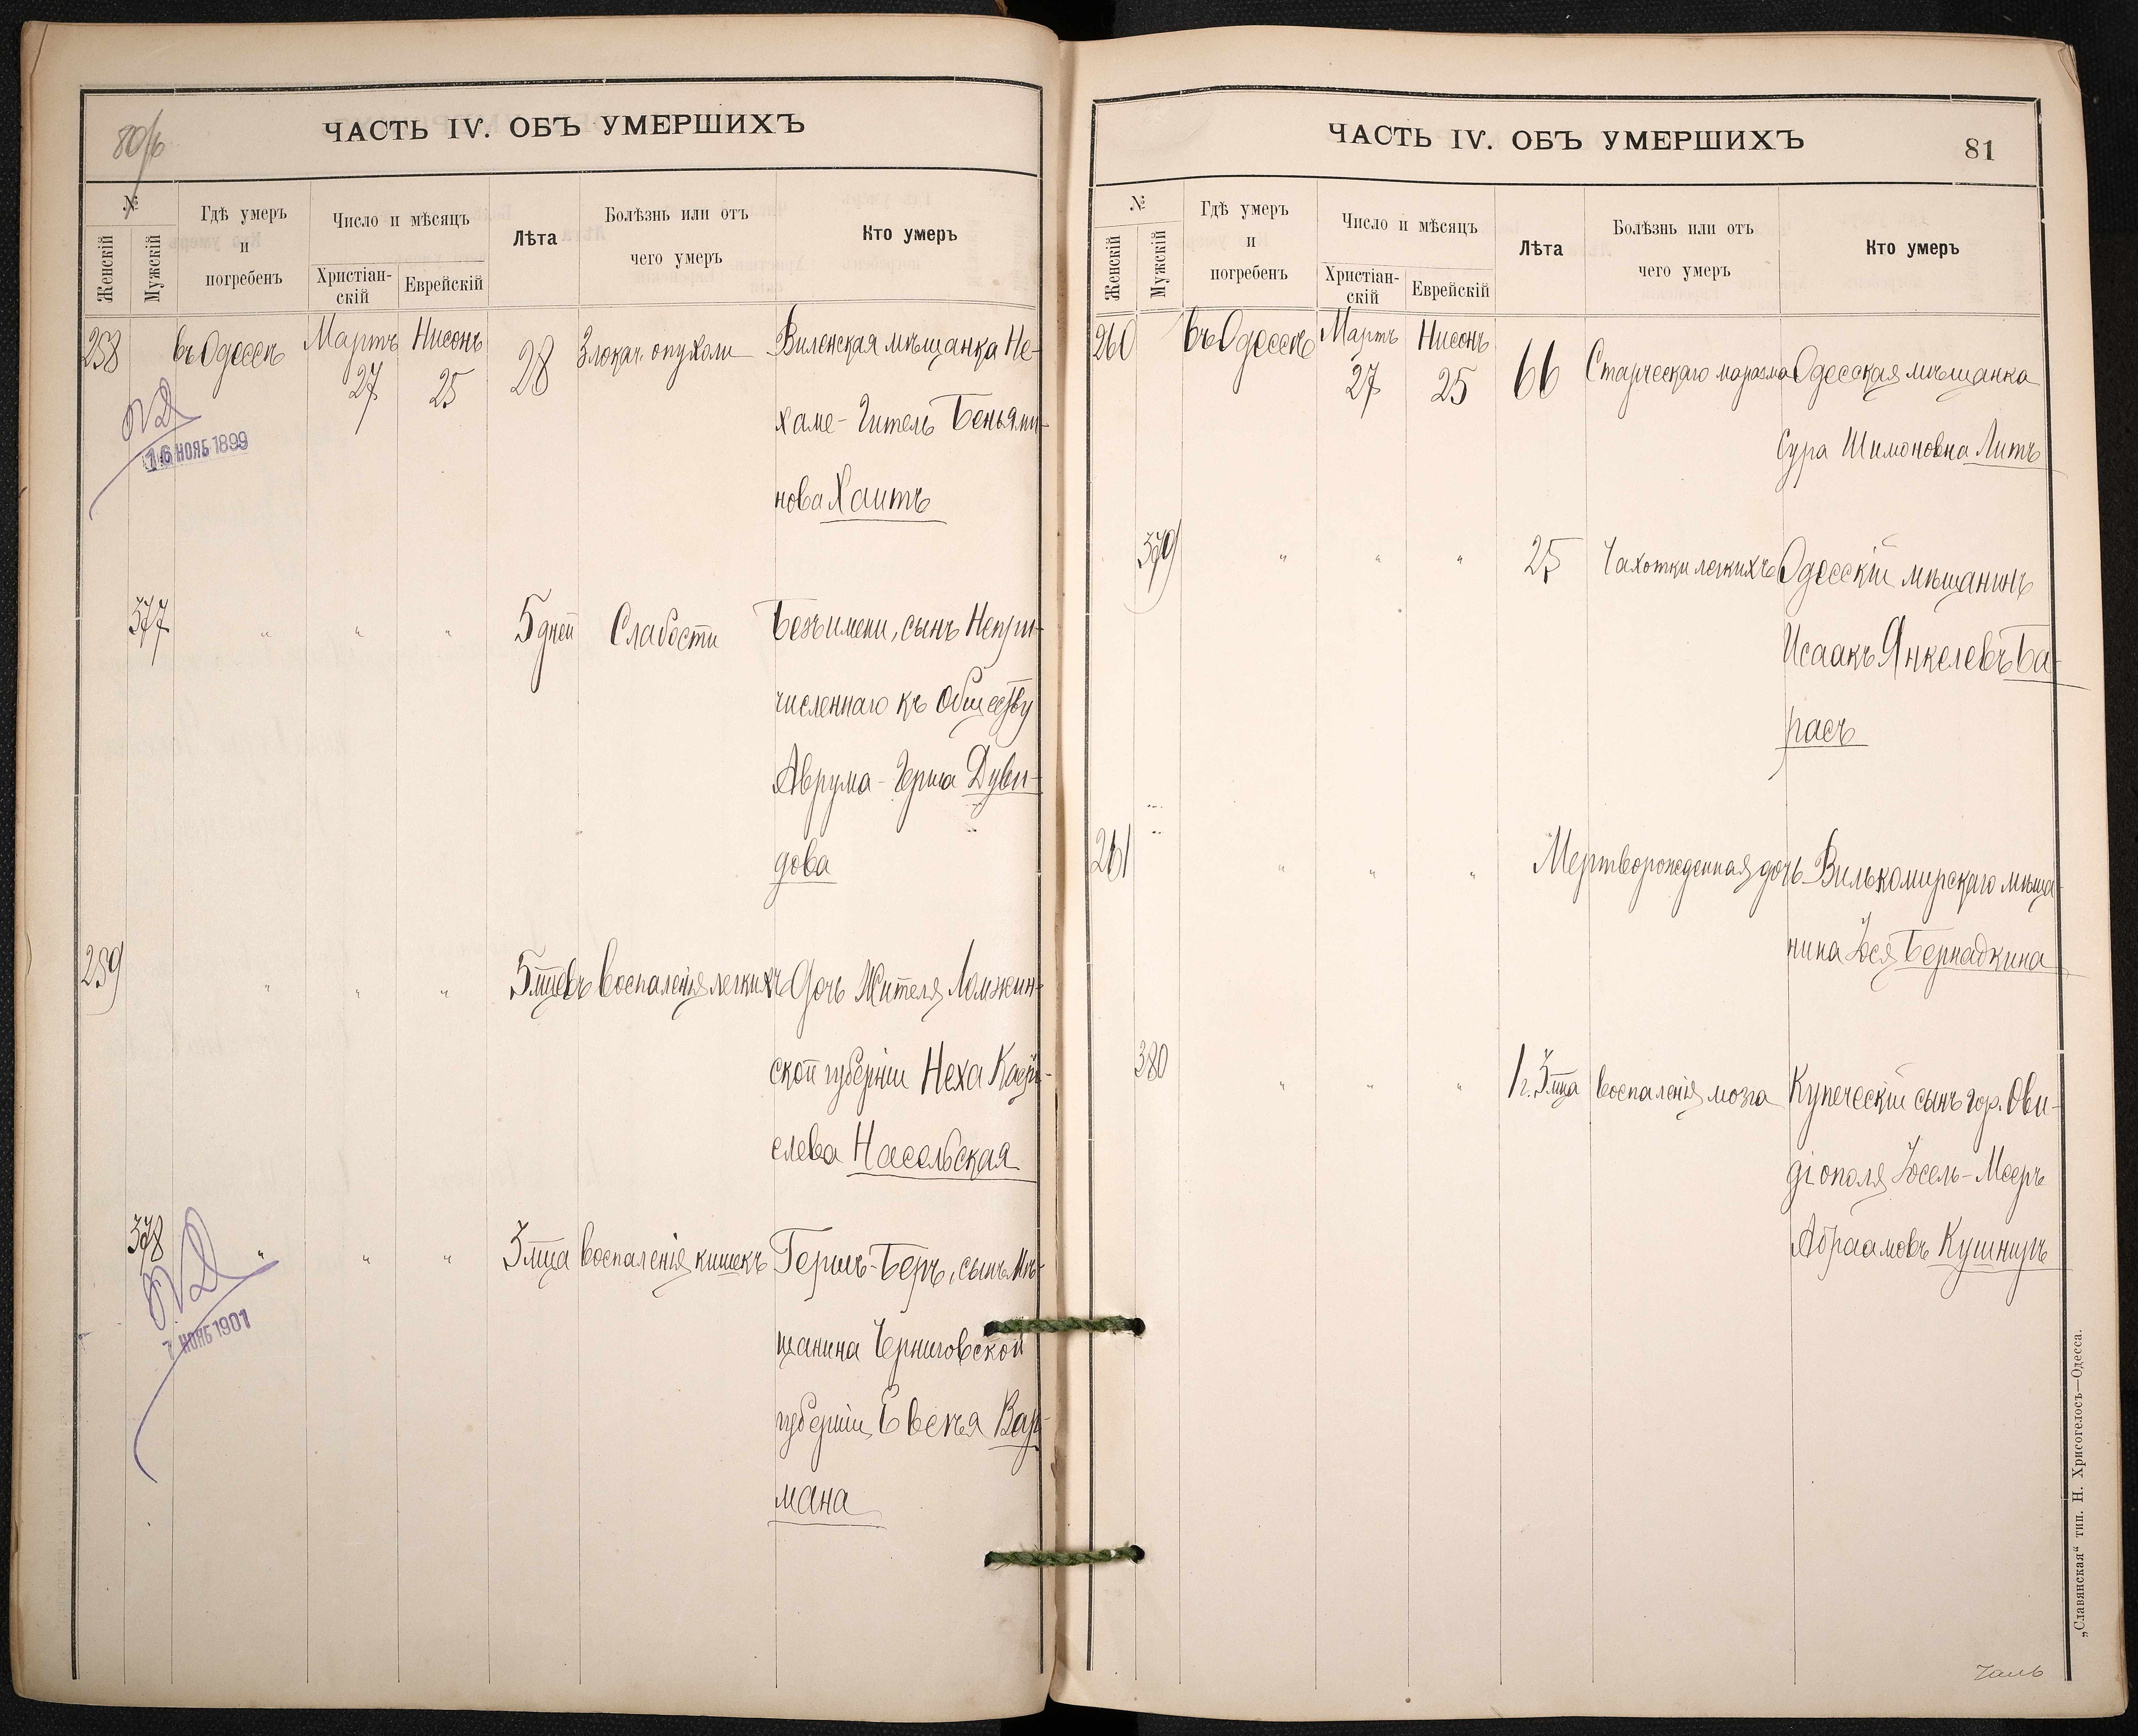 80/b
ЧАСТЬ IV. ОБЪ УМЕРШИХЪ
№
Женскій
Мужскій
Гдѣ умеръ
и
погребенъ
Число и мѣсяцъ
Христіан-
скій
Еврейскій
Лѣта
Болѣзнь или отъ
чего умеръ
Кто умеръ
258 въ Одессѣ Мартъ 27 Нисонъ 25 28 Злокач. опухоли Виленская мѣщанка Не-
хаме-Гитель Беньями-
нова Хаитъ
16 НОЯБ 1899
377 " " " 5 дней Слабости Безъ имени, сынъ Непри-
численнаго къ Обществу
Аврума-Герша Дуви-
дова
259 " " " 5 мцевъ воспаленія легкихъ Дочь Жителя Ломжин-
ской губерніи Неха Касри-
елева Насельская
378 " " " 3 мца воспаленія кишекъ Гершъ-Беръ, сынъ Мѣ-
щанина Черниговской
губерніи Евсея Вар-
мана
7 НОЯБ 1901
ЧАСТЬ IV. ОБЪ УМЕРШИХЪ
81
№
Женскій
Мужскій
Гдѣ умеръ
и
погребенъ
Число и мѣсяцъ
Христіан-
скій
Еврейскій
Лѣта
Болѣзнь или отъ
чего умеръ
Кто умеръ
260 въ Одессѣ Мартъ 27 Нисонъ 25 66 Старческаго маразма Одесская мѣщанка
Сура Шимоновна Литъ
379 " " " 25 Чахотки легкихъ Одесскій мѣщанинъ
Исаакъ Янкелевъ Ба-
расъ
261 " " " Мертворожденная дочь Вилькомирскаго мѣща-
нина Іося Бернадкина
380 " " " 1 г. 3 мца воспаленія мозга Купеческій сынъ гор. Ови-
діополя Іосель-Мееръ
Абраамовъ Кушниръ
„Славянская“ тип. Н. Хрисогелосъ—Одесса.